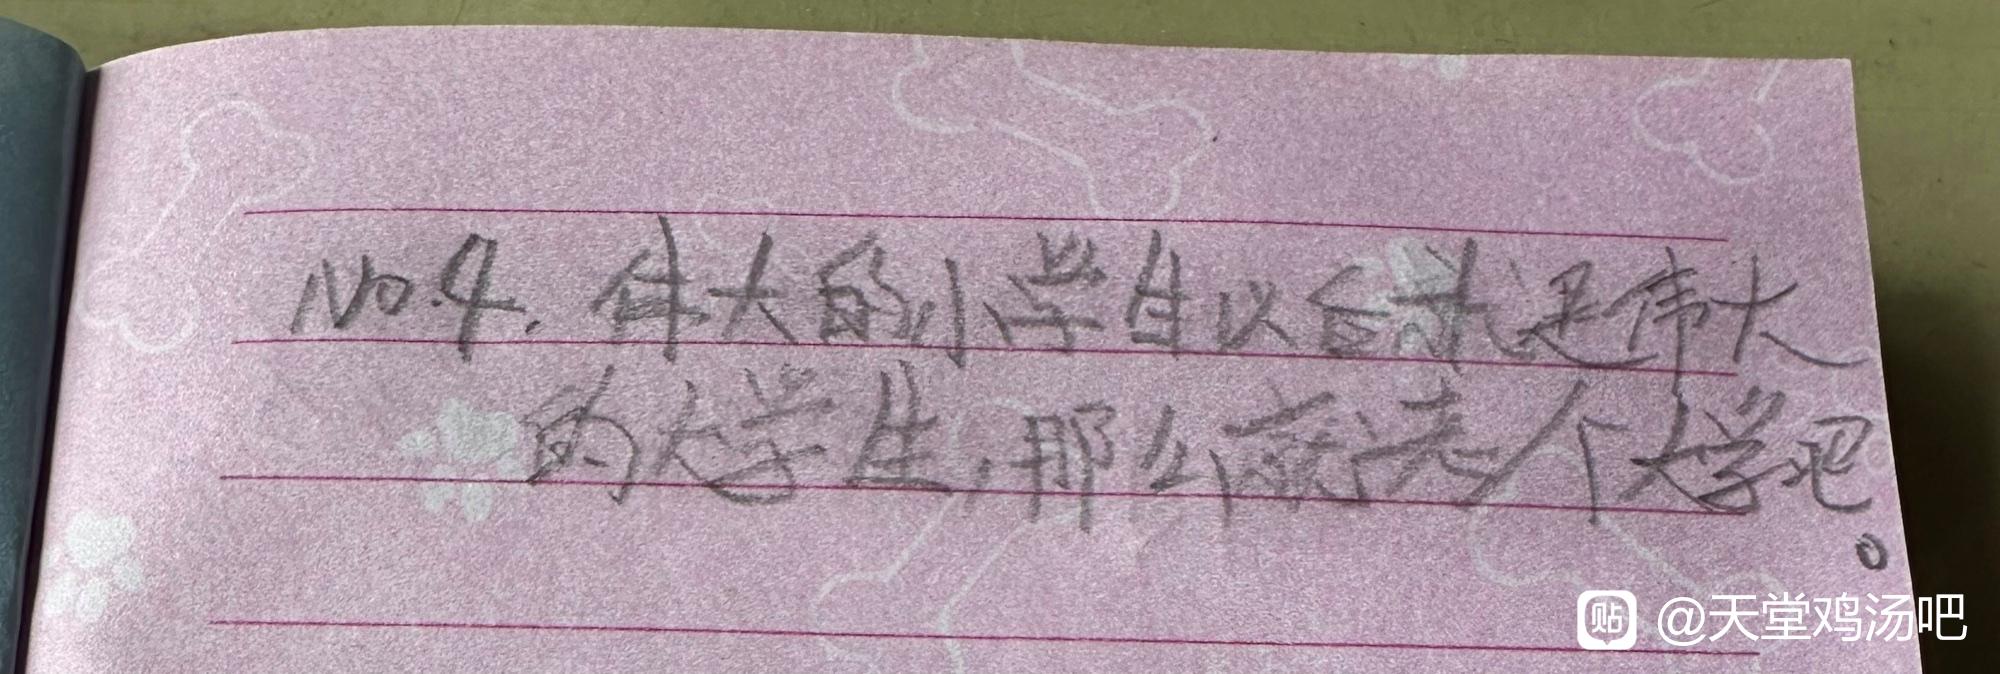 No.4. 伟大的小学生以后就是伟大
的大学生,那么就考个大学吧
。
贴 @天堂鸡汤吧